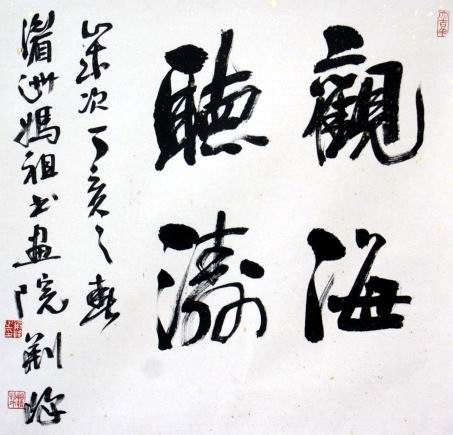 觀海
聽濤
歲次丁亥之春
湄洲媽祖書画院